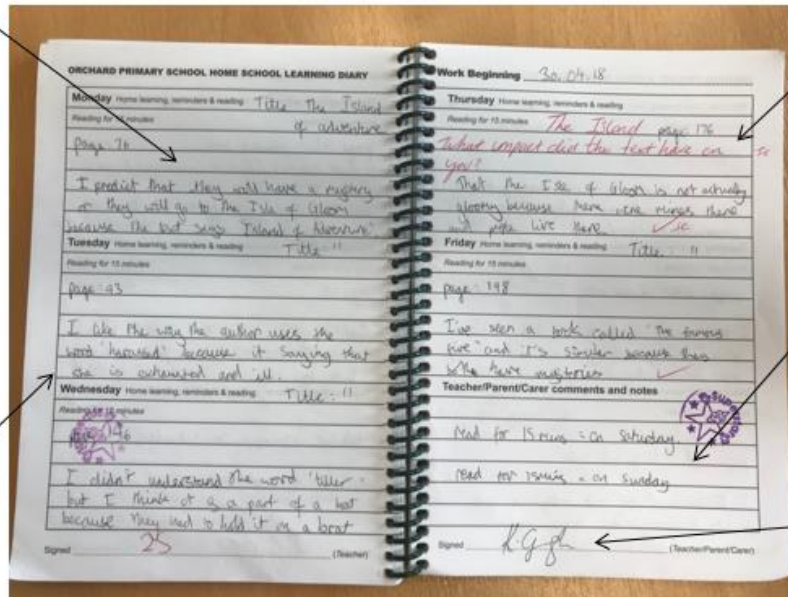 ORCHARD PRIMARY SCHOOL HOME SCHOOL LEARNING DIARY
Monday Home learning, reminders & reading Title The Island
Reading for 15 minutes of adventure
page 76
I predict that they will have a mystery
or they will go to the Isle of Gloom
because the text says 'Island of Adventure'
Tuesday Home learning, reminders & reading Title: "
Reading for 15 minutes
page: 93
I like the way the author uses the
word 'harassed' because it saying that
she is exhausted and ill.
Wednesday Home learning, reminders & reading Title: "
Reading for 15 minutes
I didn't understand the word 'tiller'
but I think it is a part of a boat
because they had to hold it on a boat
Signed 25 (Teacher)
Work Beginning 30.04.18
Thursday Home learning, reminders & reading
Reading for 15 minutes The Island page: 176
What impact did the text have on
you?
That the Isle of Gloom is not actually
gloomy because there were mines there
and people live there.
Friday Home learning, reminders & reading Title: "
Reading for 15 minutes
page: 198
I've seen a book called "The famous
five" and it's similer because they
both have mysteries
Teacher/Parent/Carer comments and notes
Superstar
read for 15 mins = on Saturday
read for 15 mins = on Sunday
Signed (Teacher/Parent/Carer)